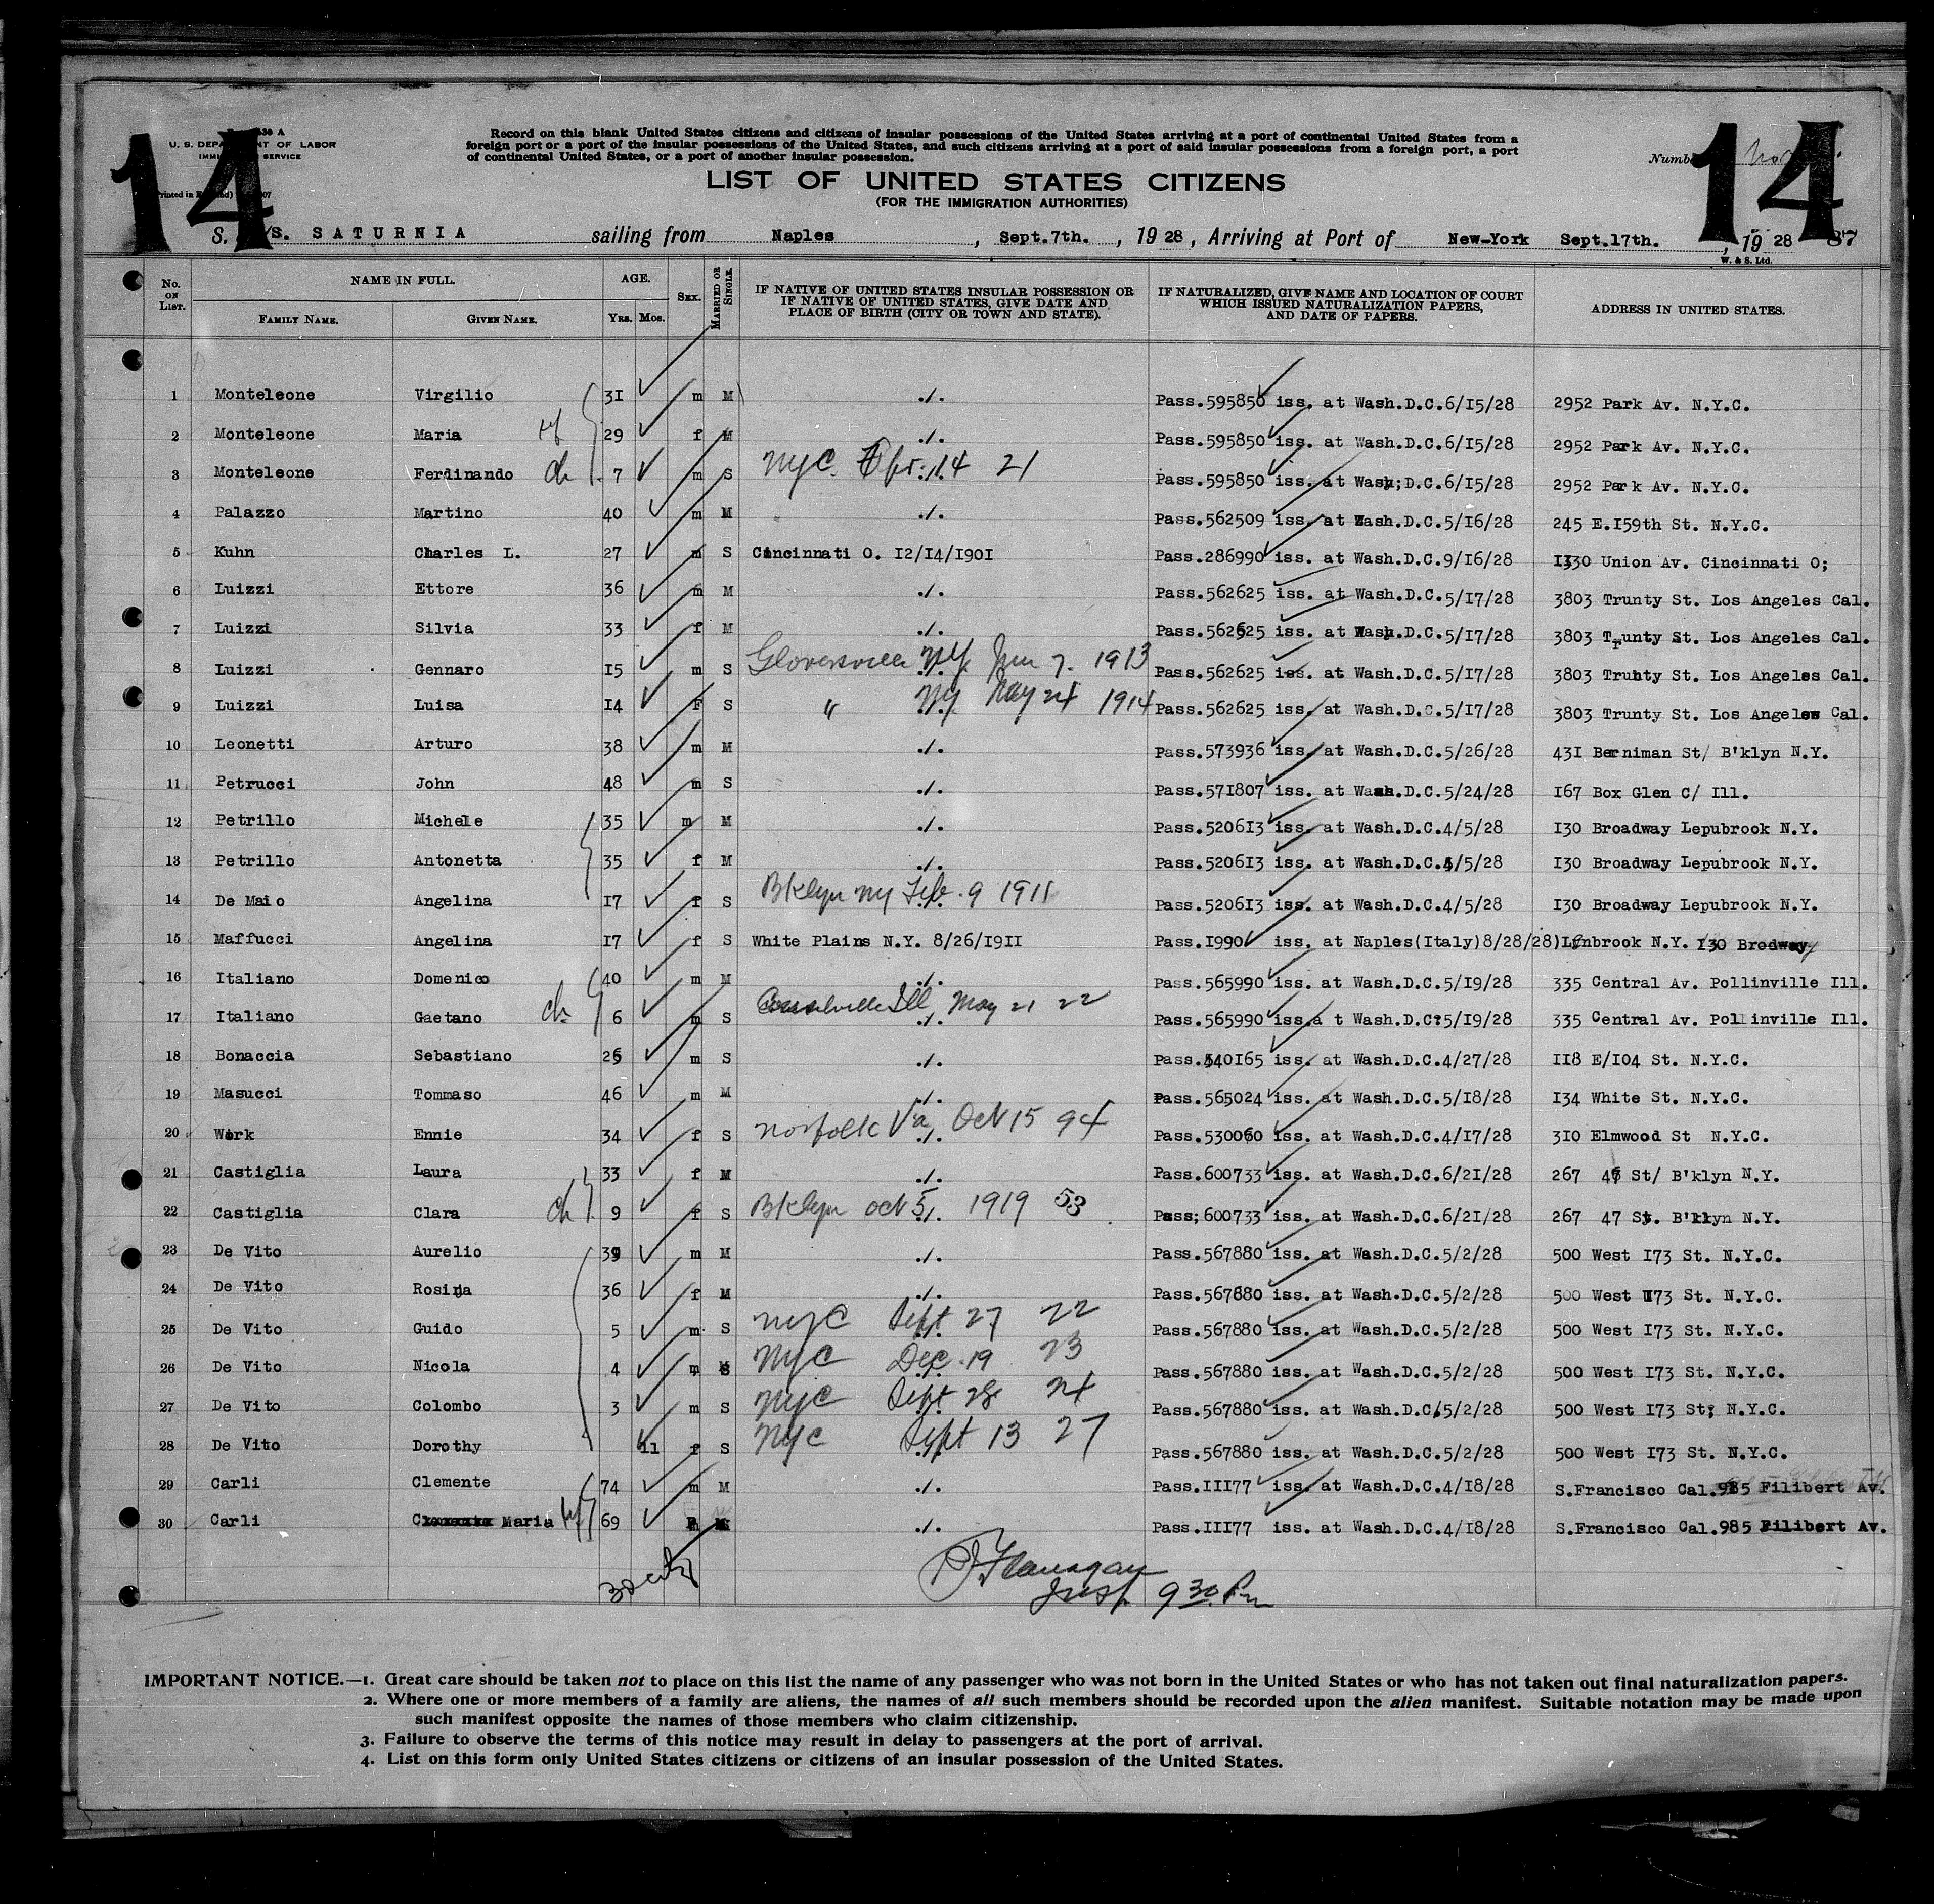 14
14
30 A
U. S. DEPA NT OF LABOR
IMMI SERVICE
Printed in E
Record on this blank United States citizens and citizens of insular possessions of the United States arriving at a port of continental United States from a
foreign port or a port of the insular possessions of the United States, and such citizens arriving at a port of said insular possessions from a foreign port, a port
of continental United States, or a port of another insular possession.
Numb
LIST OF UNITED STATES CITIZENS
(FOR THE IMMIGRATION AUTHORITIES)
S. S. SATURNIA sailing from Naples, Sept.7th., 1928, Arriving at Port of New-York Sept.17th., 1928 87
W. & S. Ltd.
No. ON LIST. NAME IN FULL. FAMILY NAME. GIVEN NAME. AGE. YRS. MOS. SEX. MARRIED OR SINGLE. IF NATIVE OF UNITED STATES INSULAR POSSESSION OR IF NATIVE OF UNITED STATES, GIVE DATE AND PLACE OF BIRTH (CITY OR TOWN AND STATE). IF NATURALIZED, GIVE NAME AND LOCATION OF COURT WHICH ISSUED NATURALIZATION PAPERS, AND DATE OF PAPERS. ADDRESS IN UNITED STATES.
1 Monteleone Virgilio 31 m M ./. Pass.595850 iss. at Wash.D.C.6/15/28 2952 Park Av. N.Y.C.
2 Monteleone Maria wf 29 f M ./. Pass.595850 iss. at Wash.D.C.6/15/28 2952 Park Av. N.Y.C.
3 Monteleone Ferdinando ch 7 m S NYC. Apr. 14 21 ./. Pass.595850 iss. at Wash;D.C.6/15/28 2952 Park Av. N.Y.C.
4 Palazzo Martino 40 m M ./. Pass.562509 iss. at Wash.D.C.5/16/28 245 E.159th St. N.Y.C.
5 Kuhn Charles L. 27 m S Cincinnati O. 12/14/1901 Pass.286990 iss. at Wash.D.C.9/16/28 1330 Union Av. Cincinnati O;
6 Luizzi Ettore 36 m M ./. Pass.562625 iss. at Wash.D.C.5/17/28 3803 Trunty St. Los Angeles Cal.
7 Luizzi Silvia 33 f M ./. Pass.562625 iss. at Wash.D.C.5/17/28 3803 Trunty St. Los Angeles Cal.
8 Luizzi Gennaro 15 m S Gloversville NY 7. 1913 ./. Pass.562625 iss. at Wash.D.C.5/17/28 3803 Trunty St. Los Angeles Cal.
9 Luizzi Luisa 14 F S " NY May 24 1914 ./. Pass.562625 iss. at Wash.D.C.5/17/28 3803 Trunty St. Los Angeles Cal.
10 Leonetti Arturo 38 m M ./. Pass.573936 iss. at Wash.D.C.5/26/28 431 Berniman St/ B'klyn N.Y.
11 Petrucci John 48 m S ./. Pass.571807 iss. at Wash.D.C.5/24/28 167 Box Glen C/ Ill.
12 Petrillo Michele 35 m M ./. Pass.520613 iss. at Wash.D.C.4/5/28 130 Broadway Lepubrook N.Y.
13 Petrillo Antonetta 35 f M ./. Pass.520613 iss. at Wash.D.C.4/5/28 130 Broadway Lepubrook N.Y.
14 De Maio Angelina 17 f S Bklyn NY Feb. 9 1911 ./. Pass.520613 iss. at Wash.D.C.4/5/28 130 Broadway Lepubrook N.Y.
15 Maffucci Angelina 17 f S White Plains N.Y. 8/26/1911 Pass.1990 iss. at Naples(Italy)8/28/28)Lynbrook N.Y. 130 Brodway
16 Italiano Domenico 40 m M ./. Pass.565990 iss. at Wash.D.C.5/19/28 335 Central Av. Pollinville Ill.
17 Italiano Gaetano ch 6 m S Ill May 21 22 ./. Pass.565990 iss.a t Wash.D.C:5/19/28 335 Central Av. Pollinville Ill.
18 Bonaccia Sebastiano 25 m S ./. Pass.540165 iss. at Wash.D.C.4/27/28 118 E/104 St. N.Y.C.
19 Masucci Tommaso 46 m M ./. Pass.565024 iss. at Wash.D.C.5/18/28 134 White St. N.Y.C.
20 Work Ennie 34 f S Norfolk Va Oct 15 94 ./. Pass.530060 iss. at Wash.D.C.4/17/28 310 Elmwood St N.Y.C.
21 Castiglia Laura 33 f M ./. Pass.600733 iss. at Wash.D.C.6/21/28 267 47 St/ B'klyn N.Y.
22 Castiglia Clara ch 9 f S Bklyn Oct 5 1919 53 ./. Pass;600733 iss. at Wash.D.C.6/21/28 267 47 St. B'klyn N.Y.
23 De Vito Aurelio 39 m M ./. Pass.567880 iss. at Wash.D.C.5/2/28 500 West 173 St. N.Y.C.
24 De Vito Rosina 36 f M ./. Pass.567880 iss. at Wash.D.C.5/2/28 500 West 173 St. N.Y.C.
25 De Vito Guido 5 m S NYC Sept 27 22 ./. Pass.567880 iss. at Wash.D.C.5/2/28 500 West 173 St. N.Y.C.
26 De Vito Nicola 4 m S NYC Dec. 19 23 ./. Pass.567880 iss. at Wash.D.C.5/2/28 500 West 173 St. N.Y.C.
27 De Vito Colombo 3 m S NYC Sept 28 24 ./. Pass.567880 iss. at Wash.D.C.5/2/28 500 West 173 St; N.Y.C.
28 De Vito Dorothy 11 f S NYC Sept 13 27 ./. Pass.567880 iss. at Wash.D.C.5/2/28 500 West 173 St. N.Y.C.
29 Carli Clemente 74 m M ./. Pass.11177 iss. at Wash.D.C.4/18/28 S.Francisco Cal.985 Filibert Av.
30 Carli Maria wf 69 ./. Pass.11177 iss. at Wash.D.C.4/18/28 S.Francisco Cal.985 Filibert Av.
Flanagan
Insp 9 30 Pm
IMPORTANT NOTICE.—1. Great care should be taken not to place on this list the name of any passenger who was not born in the United States or who has not taken out final naturalization papers.
2. Where one or more members of a family are aliens, the names of all such members should be recorded upon the alien manifest. Suitable notation may be made upon
such manifest opposite the names of those members who claim citizenship.
3. Failure to observe the terms of this notice may result in delay to passengers at the port of arrival.
4. List on this form only United States citizens or citizens of an insular possession of the United States.